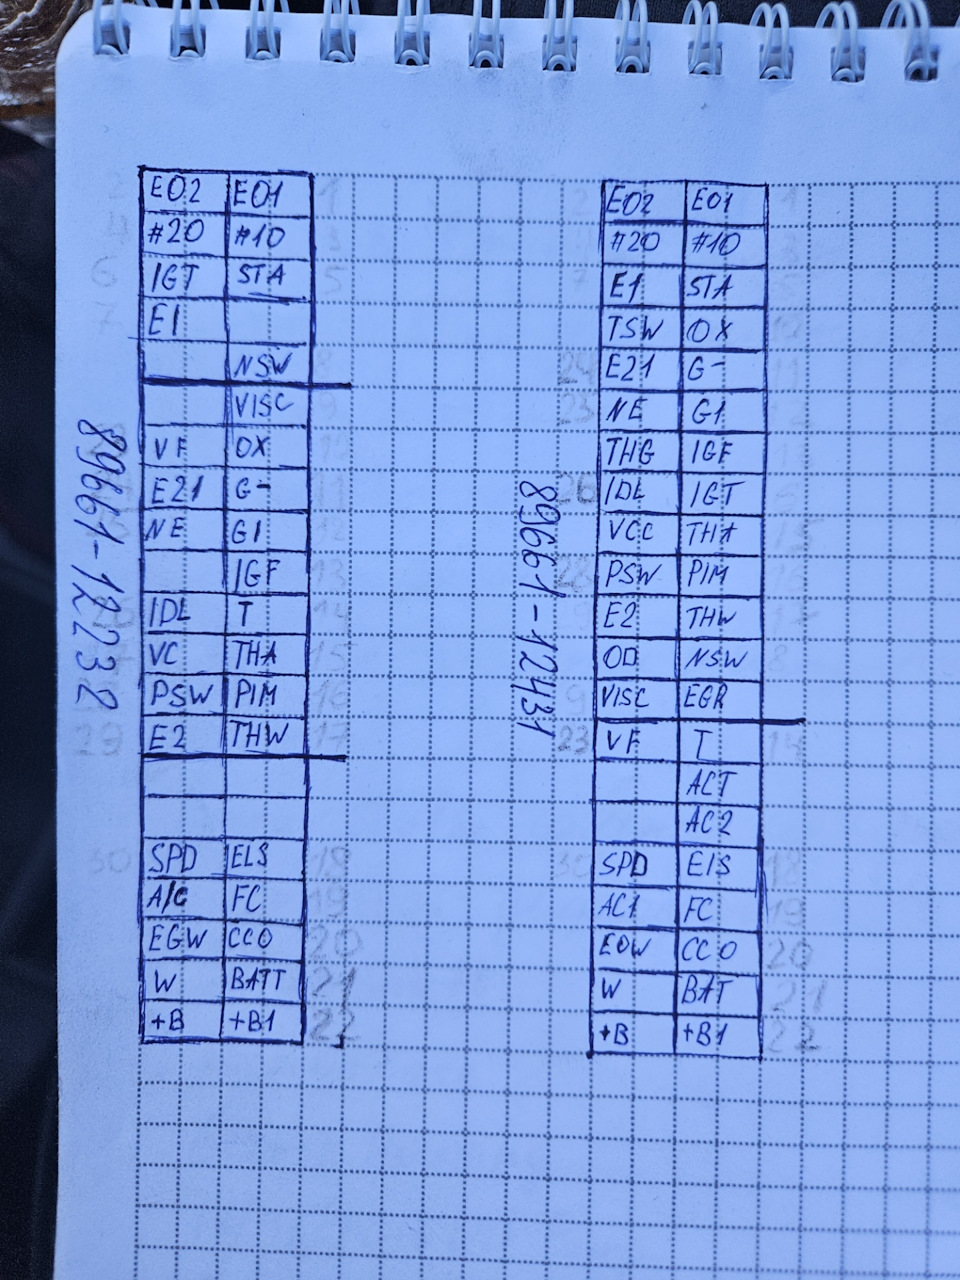 89661-12232
EO2 EO1
#20 #10
IGT STA
E1
NSW
VISC
VF OX
E21 G-
NE G1
IGF
IDL T
VC THA
PSW PIM
E2 THW
SPD ELS
A/C FC
EGW CCO
W BATT
+B +B1
89661-12431
EO2 EO1
#20 #10
E1 STA
TSW OX
E21 G-
NE G1
THG IGF
IDL IGT
VCC THA
PSW PIM
E2 THW
OD NSW
VISC EGR
VF T
ACT
AC2
SPD ElS
AC1 FC
EOW CCO
W BAT
+B +B1